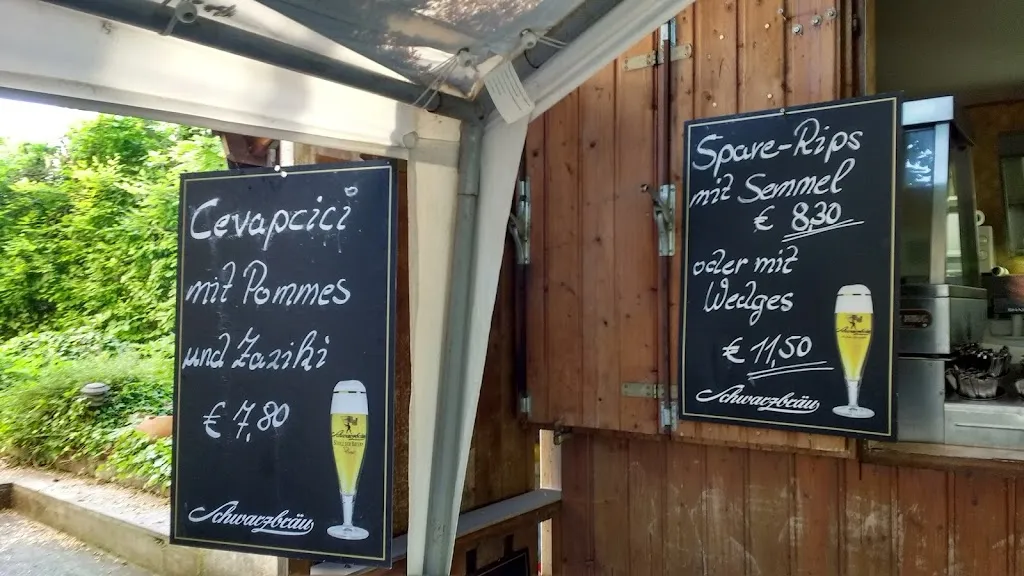 Cevapcici
mit Pommes
und Zaziki
€ 7,80
Schwarzbräu
Spare-Rips
mit Semmel
€ 8,30
oder mit
Wedges
€ 11,50
Schwarzbräu